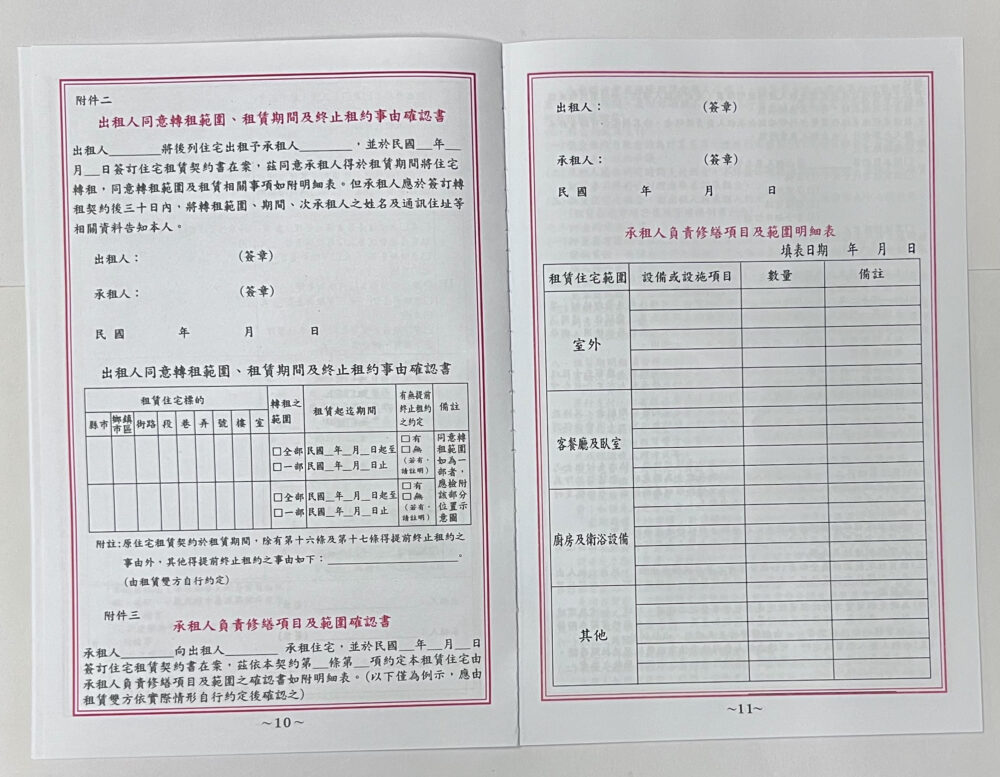 附件二
出租人同意轉租範圍、租賃期間及終止租約事由確認書
出租人________將後列住宅出租予承租人________，並於民國__年__
月__日簽訂住宅租賃契約書在案，茲同意承租人得於租賃期間將住宅
轉租，同意轉租範圍及租賃相關事項如附明細表。但承租人應於簽訂轉
租契約後三十日內，將轉租範圍、期間、次承租人之姓名及通訊住址等
相關資料告知本人。
出租人： (簽章)
承租人： (簽章)
民 國 年 月 日
出租人同意轉租範圍、租賃期間及終止租約事由確認書
租賃住宅標的 轉租之範圍 租賃起迄期間 有無提前終止租約之約定 備註
縣市 鄉鎮市區 街路 段 巷 弄 號 樓 室
□全部 民國__年__月__日起至 □有
□一部 民國__年__月__日止 □無
(若有，請註明)
□全部 民國__年__月__日起至 □有
□一部 民國__年__月__日止 □無
(若有，請註明)
同意轉租範圍如為一部者，應檢附該部分位置示意圖
附註:原住宅租賃契約於租賃期間，除有第十六條及第十七條得提前終止租約之
事由外，其他得提前終止租約之事由如下：____________________。
(由租賃雙方自行約定)
附件三
承租人負責修繕項目及範圍確認書
承租人________向出租人________ 承租住宅，並於民國__年__月__日
簽訂住宅租賃契約書在案，茲依本契約第__條第__項約定本租賃住宅由
承租人負責修繕項目及範圍之確認書如附明細表。(以下僅為例示，應由
租賃雙方依實際情形自行約定後確認之)
~10~
出租人： (簽章)
承租人： (簽章)
民 國 年 月 日
承租人負責修繕項目及範圍明細表
填表日期 年 月 日
租賃住宅範圍 設備或設施項目 數量 備註
室外
客餐廳及臥室
廚房及衛浴設備
其他
~11~